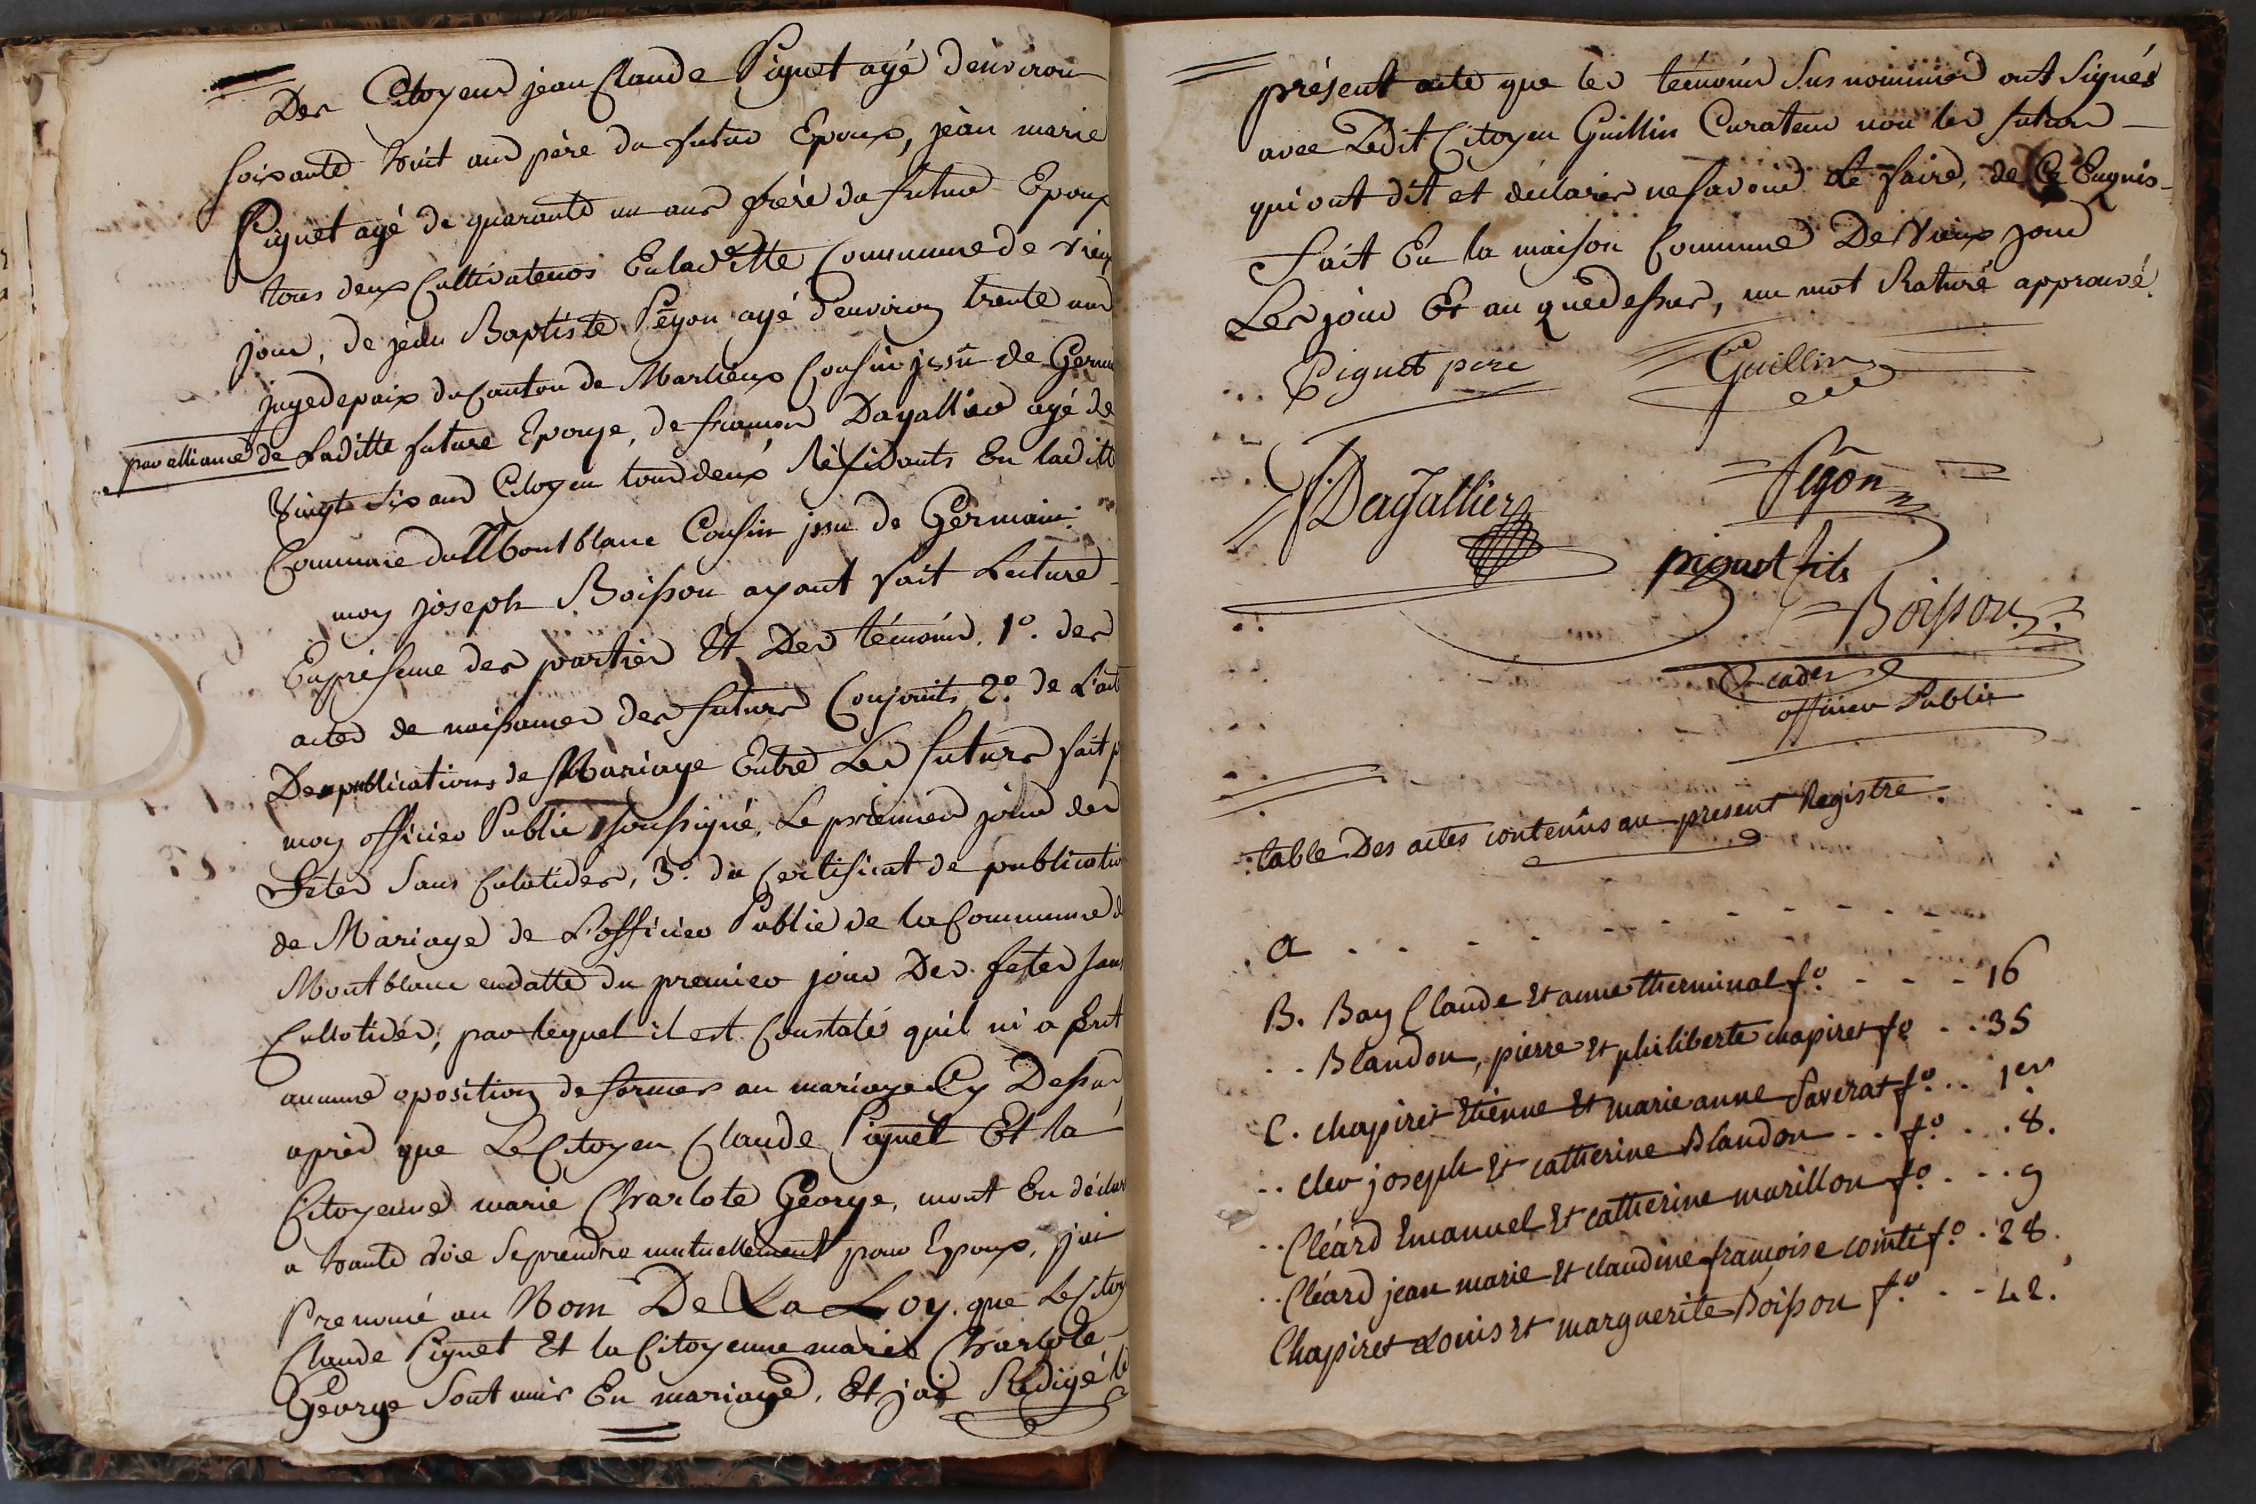 Des Citoyens jean Claude Piguet agé d'environ
soixante huit ans père du futur Epoux, jean marie
Piguet agé de quarante un ans frère du futur Epoux
tous deux Cultivateurs En laditte Commune de vieux
jour, de jean Baptiste Peyon agé d'environ trente ans
juge de paix du Canton de Marlieux Cousin issu de Germ
par alliance de Laditte future Epouse, de Dagallier agé de
vingt six ans Citoyen tous deux Résidants En laditte
Commune du Montblanc Cousin issu de Germain:
moy joseph Boisson ayant fait Lecture
En présence des parties Et Des témoins, 1º. des
actes de naissances des futurs Conjoints, 2º. de L'act
Des publications de Mariage Entre Les futurs fait p
moy officier Public soussigné, Le premier jour des
Fêtes Sans Culotides, 3º. du Certificat de publicatio
de Mariage de L'officier Public de la Commune d
Montblanc en datte du premier jour Des fêtes sans
Cullotides, par lequel il est Constaté qu'il ni a Eut
aucune oposition de former au mariage Cy Dessus,
après que Le Citoyen Claude Piguet Et la
Citoyenne marie Charlote George, mont En déclar
a haute voie Se prendre mutuellement pour Epoux, j'ai
Prenoncé au Nom De La Loy, que Le Citoy
Claude Piguet Et la Citoyenne marie Charlote
George Sont unis En mariage, Et j'ai Rédigé le
présent acte que les témoins Susnommés ont Signés
avec Ledit Citoyen Guillin Curateur non les futurs
qui ont dit et déclarés ne savoir le faire, de Ce Enquis
Fait En la maison Commune De Vieux jour
Les jour Et an que dessus, un mot Raturé approuvé.
Piguet pere Guillin
Dagallier Peyon
piguet fils
Boisson
officier Public
table Des actes contenûs au present Registre.
a
B. Bay Claude Et anne therminal fº. 16
Blandon, pierre Et philiberte chapiret fº 35
C. chapiret Etienne Et marie anne Saverat fº. 1er
clev joseph Et catherine Blandon fº. 8.
Cléard Emanuel Et catherine marillon fº. 9
Cléard jean marie Et claudine françoise comte fº. 28.
Chapiret Louis Et marguerite Boisson fº. 42.